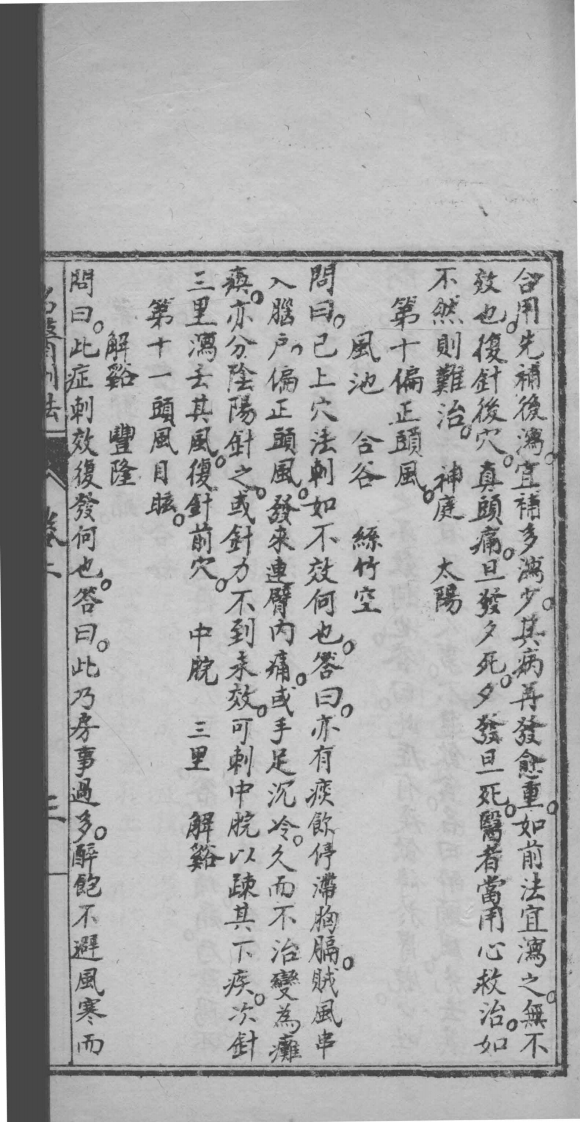 合用先補後瀉。宜補多瀉少。其病再發愈重。如前法宜瀉之。無不
效也。復針後穴。真頭痛。旦發夕死。夕發旦死。醫者當用心救治。如
不然則難治。　神庭　太陽
第十偏正頭風。
風池　合谷　絲竹空
問曰。已上穴法刺如不效何也。答曰。亦有痰飲停滯胸膈。賊風串
入腦戶。偏正頭風。發來連臂內痛。或手足沉冷。久而不治變為癱
瘓。亦分陰陽針之。或針力不到未效。可刺中脘以疎其下疾。次針
三里瀉去其風。復針前穴。　中脘　三里　解谿
第十一頭風目眩。
解谿　豐隆
問曰。此症刺效復發何也。答曰。此乃房事過多。醉飽不避風寒而
卷二
三